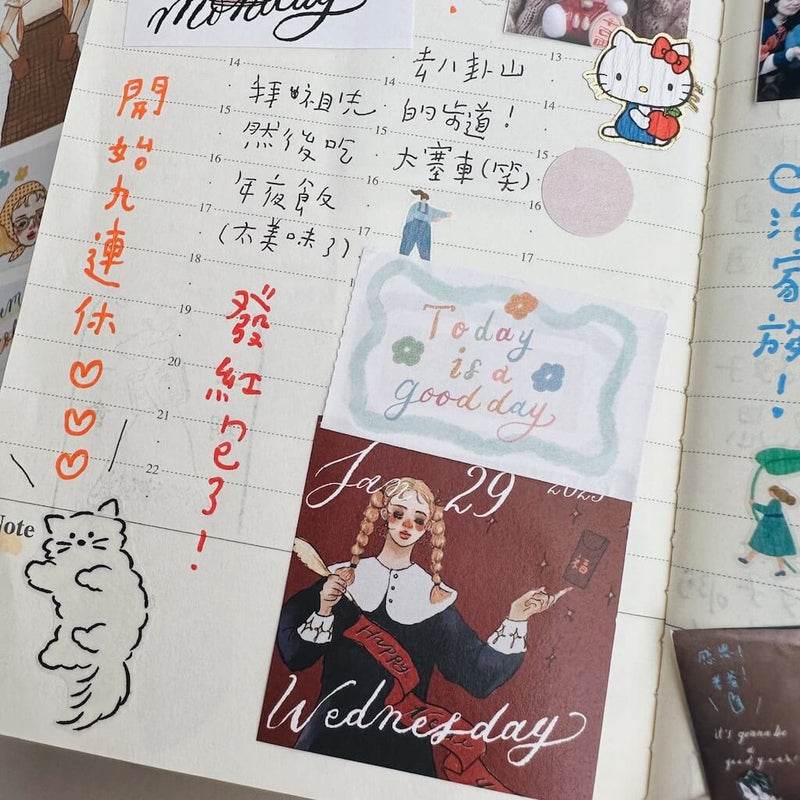 Monday
14
15
16
17
18
19
20
21
22
開始九連休
拜祖先
然後吃
年夜飯
(太美味了)
發紅包了!
Note
13
14
15
16
17
去八卦山
的步道!
大塞車(笑)
Today
is a
good day
Jan 29 2025
福
Happy
Wednesday
治家族!
感恩!
it's gonna be
a
good year!